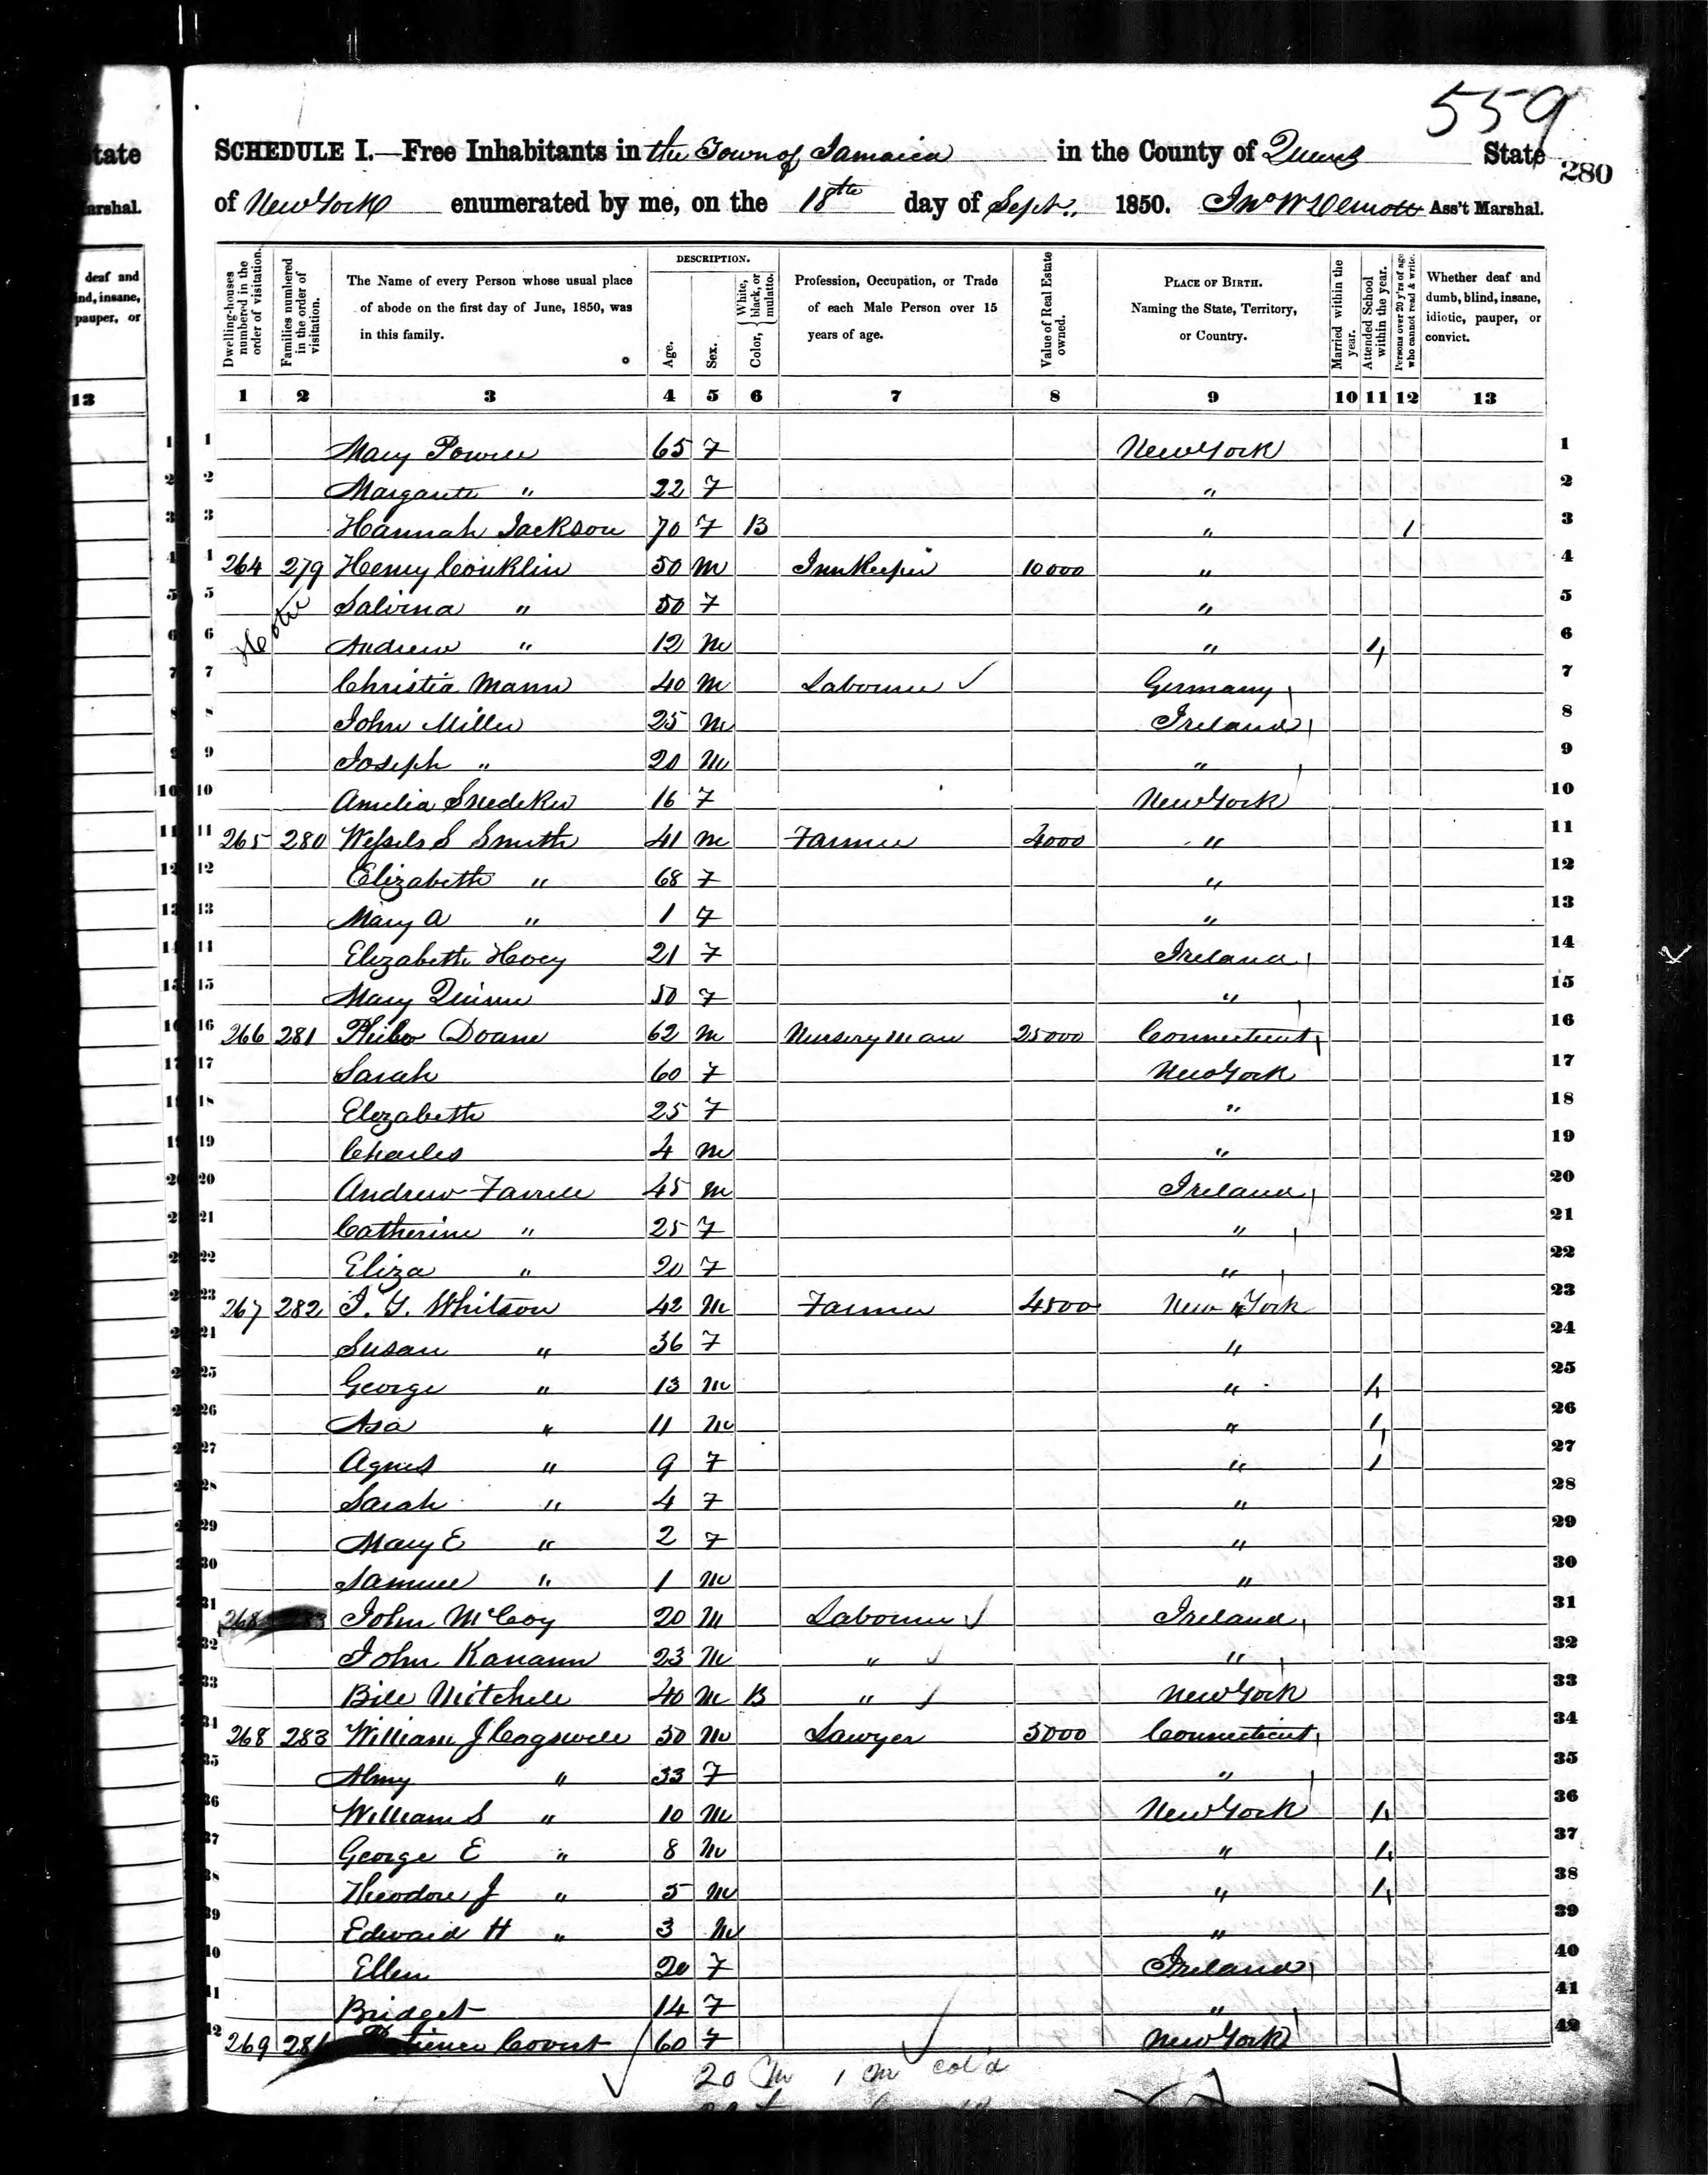 559
SCHEDULE I.—Free Inhabitants in the Town of Jamaica in the County of Queens State
280
of New York enumerated by me, on the 18th day of Sept. 1850. Jno W DeMott Ass't Marshal.
Dwelling-houses numbered in the order of visitation.
Families numbered in the order of visitation.
The Name of every Person whose usual place of abode on the first day of June, 1850, was in this family.
DESCRIPTION.
Age.
Sex.
Color, White, black, or mulatto.
Profession, Occupation, or Trade of each Male Person over 15 years of age.
Value of Real Estate owned.
PLACE OF BIRTH. Naming the State, Territory, or Country.
Married within the year.
Attended School within the year.
Persons over 20 y'rs of age who cannot read & write.
Whether deaf and dumb, blind, insane, idiotic, pauper, or convict.
1 2 3 4 5 6 7 8 9 10 11 12 13
1 Mary Powell 65 F New York 1
2 Margarete " 22 F " 2
3 Hannah Jackson 70 F B " 1 3
4 264 279 Henry Conklin 50 M InnKeeper 10000 " 4
Hotel
5 Salvina " 50 F " 5
6 Andrew " 12 M " 1 6
7 Christia Mann 40 M Labourer Germany 7
8 John Miller 25 M Ireland 8
9 Joseph " 20 M " 9
10 Amelia Snedeker 16 F New York 10
11 265 280 Wessels S Smith 41 M Farmer 4000 " 11
12 Elizabeth " 68 F " 12
13 Mary A " 1 F " 13
14 Elizabeth Hoey 21 F Ireland 14
15 Mary Quinn 50 F " 15
16 266 281 Philo Doane 62 M Nursery Man 25000 Connecticut 16
17 Sarah 60 F New York 17
18 Elizabeth 25 F " 18
19 Charles 4 M " 19
20 Andrew Farrell 45 M Ireland 20
21 Catherine " 25 F " 21
22 Eliza " 20 F " 22
23 267 282 I. Y. Whitson 42 M Farmer 4500 New York 23
24 Susan " 36 F " 24
25 George " 13 M " 1 25
26 Asa " 11 M " 1 26
27 Agnes " 9 F " 1 27
28 Sarah " 4 F " 28
29 Mary E " 2 F " 29
30 Samuel " 1 M " 30
31 268 283 John McCoy 20 M Labourer Ireland 31
32 John Kanann 23 M " " 32
33 Bill Mitchell 40 M B " New York 33
34 268 283 William J Cogswell 50 M Lawyer 5000 Connecticut 34
35 Almy " 33 F " 35
36 William S " 10 M New York 1 36
37 George E " 8 M " 1 37
38 Theodore J " 5 M " 1 38
39 Edward H " 3 M " 39
40 Ellen 20 F Ireland 40
41 Bridget 14 F " 41
42 269 284 Patience Covert 60 F New York 42
20 M 1 M col'd